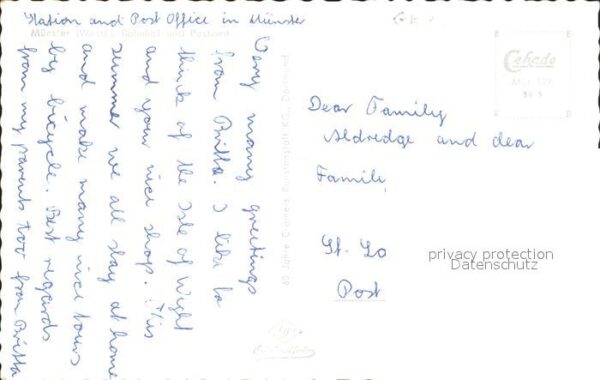 Station and Post Office in Münster
Münster (Westf.) Bahnhof und Postamt
Very many greetings
from Britta. I like to
think of the Isle of Wight
and your nice shop. This
summer we all stay at home
and make many nice tours
by bicycle. Best regards
from my parents too from Britta
60 Jahre Cramers Kunstanstalt KG., Dortmund
Cekade
Dear Family
Aldredge and dear
Family,
St. Lo
Post
privacy protection
Datenschutz